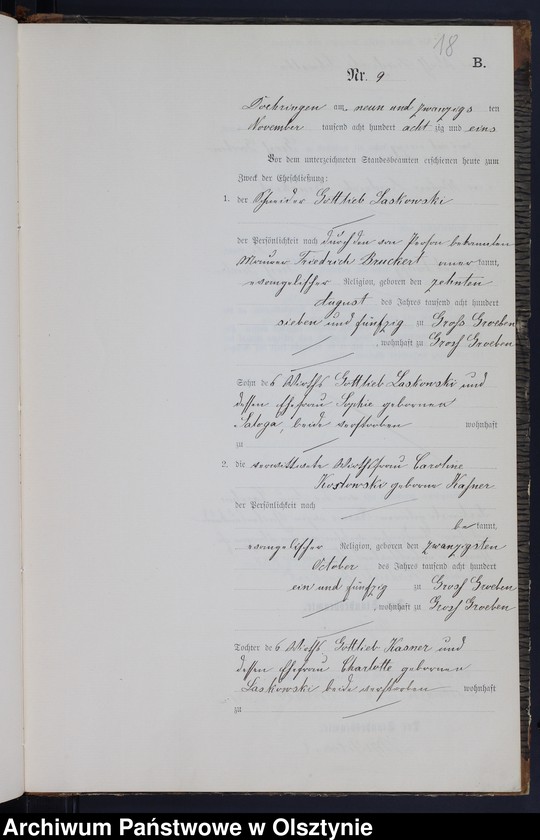 18
B.
Nr. 9
Doehringen am neun und zwanzigs ten
November tausend acht hundert acht zig und eins
Vor dem unterzeichneten Standesbeamten erschienen heute zum
Zweck der Eheschließung:
1. der Schneider Gottlieb Laskowski
der Persönlichkeit nach durch den von Person bekannten
Maurer Friedrich Bruckert kannt,
evangelischer Religion, geboren den zehnten
August des Jahres tausend acht hundert
sieben und fünfzig zu Gross Groeben
, wohnhaft zu Gross Groeben
Sohn des Wirths Gottlieb Laskowski und
dessen Ehefrau Sophie gebornen
Saloga, beide verstorben wohnhaft
zu
2. die verwittwete Wirthsfrau Caroline
Kostowski geborne Kasner
der Persönlichkeit nach
be kannt,
evangelischer Religion, geboren den zwanzigsten
October des Jahres tausend acht hundert
ein und fünfzig zu Gross Groeben
, wohnhaft zu Gross Groeben
Tochter des Wirths Gottlieb Kasner und
dessen Ehefrau Charlotte gebornen
Laskowski beide verstorben wohnhaft
zu
Archiwum Państwowe w Olsztynie